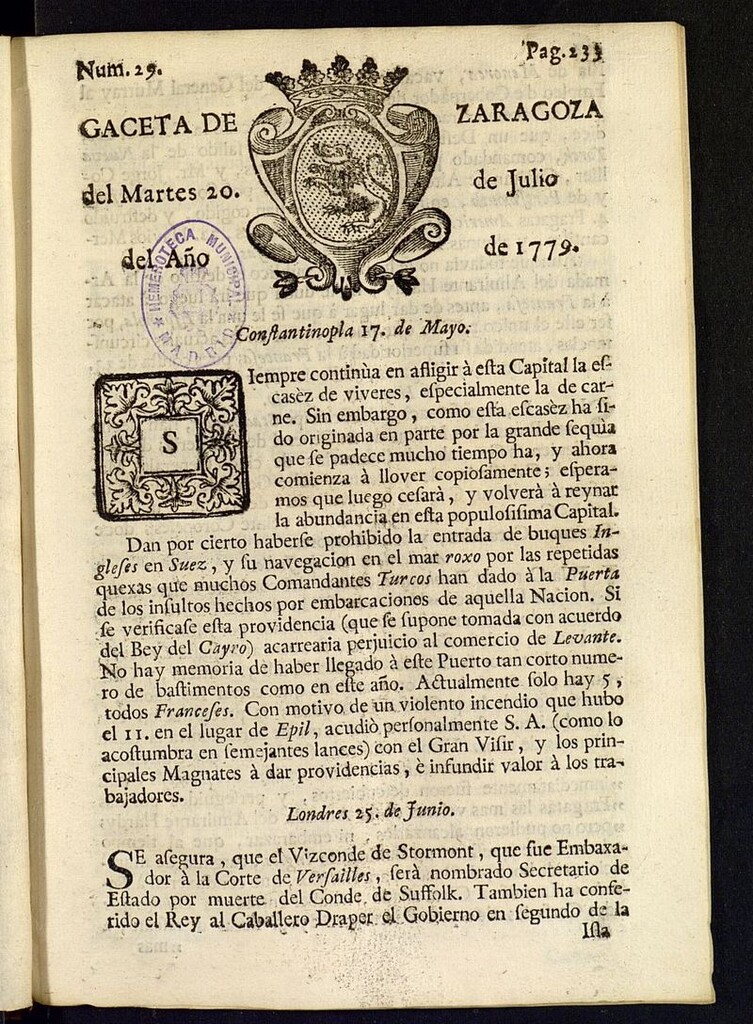 Num. 29.
Pag. 233
GACETA DE ZARAGOZA
del Martes 20. de Julio
del Año de 1779.
HEMEROTECA MUNICIPAL
MADRID
Conſtantinopla 17. de Mayo.
SIempre continùa en afligir à eſta Capital la eſ-
casèz de viveres, eſpecialmente la de car-
ne. Sin embargo, como eſta eſcasèz ha ſi-
do originada en parte por la grande ſequìa
que ſe padece mucho tiempo ha, y ahora
comienza à llover copioſamente; eſpera-
mos que luego ceſarà, y volverà à reynar
la abundancia en eſta populoſiſima Capital.
Dan por cierto haberſe prohibido la entrada de buques In-
gleſes en Suez, y ſu navegacion en el mar roxo por las repetidas
quexas que muchos Comandantes Turcos han dado à la Puerta
de los inſultos hechos por embarcaciones de aquella Nacion. Si
ſe verificaſe eſta providencia (que ſe ſupone tomada con acuerdo
del Bey del Cayro) acarrearia perjuicio al comercio de Levante.
No hay memoria de haber llegado à eſte Puerto tan corto nume-
ro de baſtimentos como en eſte año. Actualmente ſolo hay 5,
todos Franceſes. Con motivo de un violento incendio que hubo
el 11. en el lugar de Epil, acudiò perſonalmente S. A. (como lo
acoſtumbra en ſemejantes lances) con el Gran Viſir, y los prin-
cipales Magnates à dar providencias, è infundir valor à los tra-
bajadores.
Londres 25. de Junio.
SE aſegura, que el Vizconde de Stormont, que fue Embaxa-
dor à la Corte de Verſailles, ſerà nombrado Secretario de
Eſtado por muerte del Conde de Suffolk. Tambien ha confe-
rido el Rey al Caballero Draper el Gobierno en ſegundo de la
Iſla